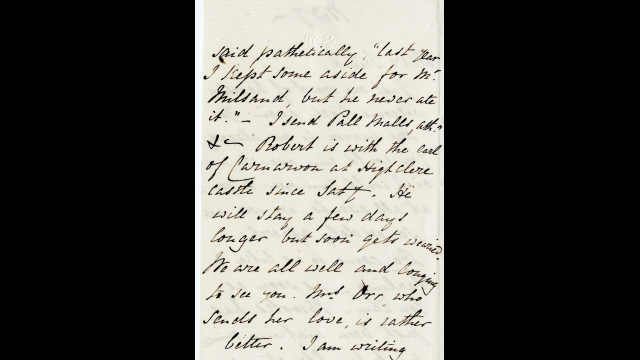 said pathetically "last year
I kept some aside for Mr
Milsand, but he never ate
it." – I send Pall Malls, ath."
&c – Robert is with the earl
of Carnarvon at Highclere
castle since Saty. He
will stay a few days
longer but soon gets wearied.
We are all well and longing
to see you. Mrs Orr, who
sends her love, is rather
better. I am writing